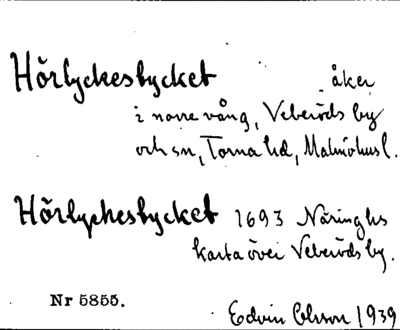 Hörlyckestycket åker
i norre vång, Veberöds by
och sn, Torna hd, Malmöhus l.
Hörlyckestycket 1693 Näringhs
karta över Veberöds by.
Nr 5855. Edvin Olsson 1939